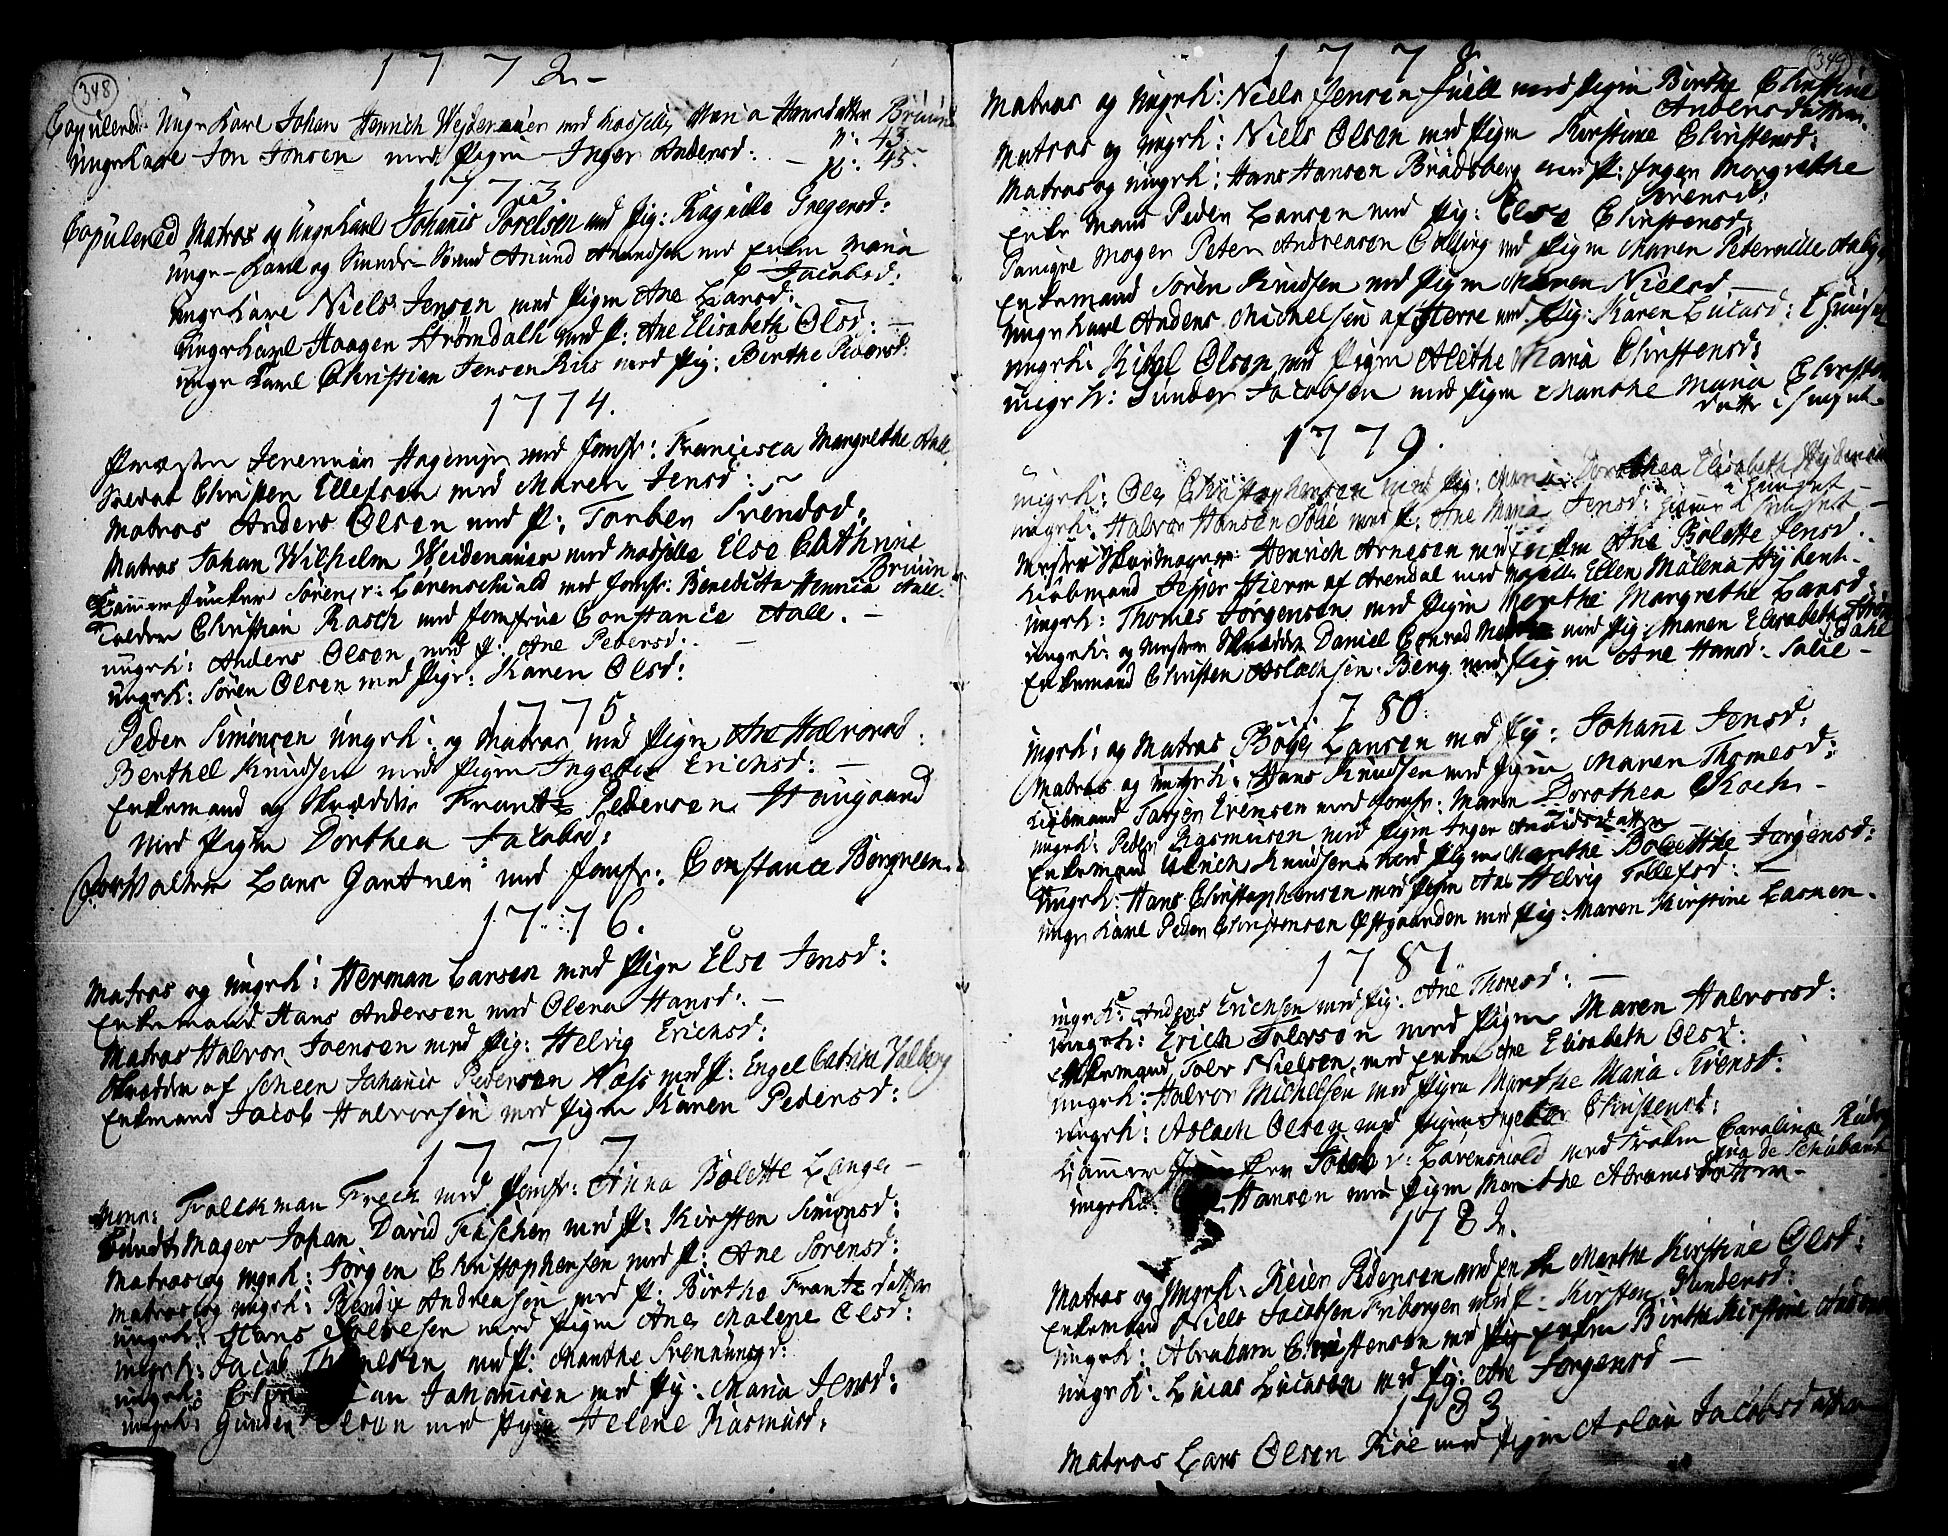 348
1772 -
Copulered Ungekarl Johan Henrich Weidemauer med Madsell: Maria Hansdatter Bruun
Ungekarl Jon Jonsen med Pigen Inger Andersd: - N: 43
N: 45
1773.
Copulered Matros og Ungekarl Johannis med Pig: Ragnille Gregersd:
Unge-Karl og Amund Amundsen med Enken Maria
Jacobsd:
Ungekarl Niels Jensen med Pigen Ane Larsd:
Ungekarl Haagen Strømdahl med P: Ane Elisabeth Olsd: -
Unge Karl Christian Jensen Riis med Pig: Birthe Pedersd:
1774.
Præsten Jeremias Hagerup med Jomfr: Francisca Margrethe Aall
Christen Ellefsen med Maren Jensd:
Matros Anders Olsen med P: Torber Svendsd:
Matros Johan Wilhelm Weidemauer med Madselle Else Cathrine
Bruun
Cammer Junker Søren v: Løvenschiold med Jomfr: Benedicta Henrica Aall.
Christian Rasch med Jomfrue Constance Aall. -
ungk: Anders Olsen med P: Ane Pedersd: -
ungk: Søren Olsen med Pige: Karen Olsd:
1775.
Peder Simonsen Ungk: og Matros med Pigen Ane Halvorsd:
Berthel Knudsen med Pigen Ingebor Erichsd: -
Enkemand og Skrædder Frantz Pedersen Haugaard
med Pigen Dorthea Jacobsd:
Lars Gartner med Jomfr: Constance Borgreen.
1776.
Matros og ungk: Herman Larsen med Pige Else Jensd:
Enkemand Hans Andersen med Olena Hansd: -
Matros Halvor Joensen med Pig: Helvig Erichsd:
Skrædder af Scheen Johannis Pedersen Næss med P: Engel Catrina Valberg
Enkemand Jacob Halvorsen med Pigen Karen Pedersd:
1777
Monr: Folckman Frech med Jomfr: Anna Bolette Lange -
Mager Johan David med P: Kirsten Simonsd:
Matros og ungk: Jørgen Christophersen med P: Ane Sørensd:
Matros og ungk: Bendix Andreasen med P: Birthe Frantz datter
ungk: Hans med Pigen Ane Malene Olsd:
ungk: Jacob med P: Marthe Svennungd:
ungk: Johannisen med Pig: Maria Jensd:
ungk: Gunder Olsen med Pigen Helene Rasmusd:
349
1778
Matros og Ungk: Niels Jensen Juell med Pigen Birthe Christine
Andersdatter.
Matros og Ungk: Niels Olsen med Pigen Kirstine Christensd:
Matros og ungk: Hans Hansen Bradsberg med P: Inger Margrethe
Sørensd:
Enke Mand Peder Larsen med Pig: Else Christensd:
Mager Peter Andreasen Colling med Pigen Maren Peternille
Enkemand Søren Knudsen med Pigen Maren Nielsd -
Ungekarl Anders Michelsen af med Pig: Karen Lucasd:
ungk: Kittel Olsen med Pigen Alethe Maria Christensd:
ungk: Gunder Jacobsen med Pigen Marthe Maria Christens
datter
1779.
ungk: Ole Christophersen med Pig: Dorothea Elisabeth
ungk: Halvor Hansen Solie med P: Ane Maria Jensd:
Mester Skoemager: Henrich Arnesen med Ane Bolette Jensd.
Kiøbmand Jesper Hierm af Arendal med Madselle Ellen Malena
ungk: Thomes Jørgensen med Pigen Marthe Margrethe Larsd:
ungk: og Mester Skrædder Daniel Conrad med Pig: Maren Elisabeth
dahl
Enkemand Christen Aslachsen Berg med Pigen Ane Hansd: Solie -
1780.
ungk: og Matros Børge Larsen med Pig: Johanne Jensd:
Matros og ungk: Hans Knudsen med Pigen Maren Thomesd:
Kiøbmand Torjer Evensen med Jomfr: Maren Dorothea Koch -
ungk: Peder Rasmusen med Pigen Inger
Enkemand Ulrich Knudsen med Pigen Marthe Bolethe Jørgensd:
Ungk: Hans Christophersen med Pigen Ane Helvig Tollefsd: -
Unge Karl Peder Christensen Østgaarden med Pig: Maren Kirstine Larsen.
1781
ungk: Anders Erichsen med Pig: Ane Thoresd: -
Ungk: Erich Tolvsen med Pigen Maren Halvorsd:
Enkemand Tolv Nielsen med Enken Ane Elisabeth Olsd:
ungk: Halvor Michelsen med Pigen Marthe Maria Svensd:
ungk: Aslach Olsen med Pigen Ingebor Christensd:
Kammer Jacob v: Løvenskiold med Frøken Carolina
de Schubart
ungk: Hansen med Pigen Marthe Abramsdatter -
1782.
Matros og Ungk: Reier Pedersen med Enke Marthe Kirstine Olsd:
Enkemand Niels Jacobsen Friborgen med P: Kirsten Gundersd:
ungk: Abraham Christensen med Enken Birthe Kirstine
ungk: Lucas Lucasen med Pig: Ane Jørgensd -
1783
Matros Lars Olsen Røe med Pigen Jacobsdatter